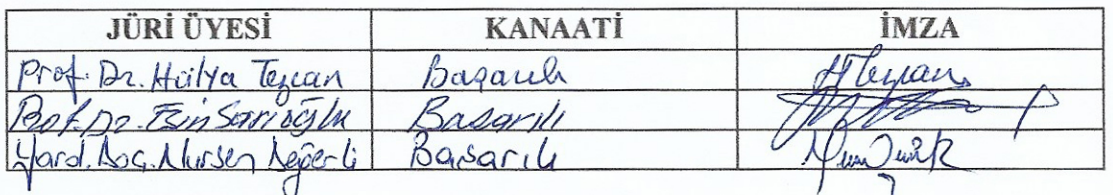 JÜRİ ÜYESİ KANAATİ İMZA
Prof. Dr. Hülya Tezcan Başarılı
Prof. Dr. Esin Sarıoğlu Başarılı
Yard. Doç. Nursen Değerli Başarılı